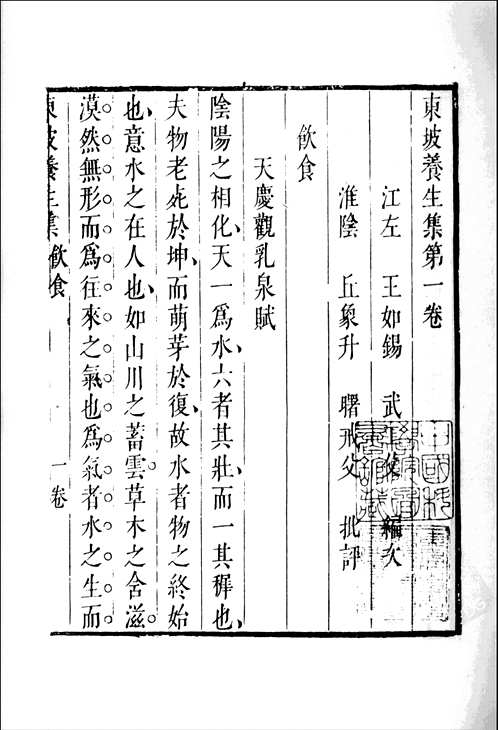 東坡養生集第一卷
江左 王如錫 武 編次
淮陰 丘象升 曙戒父 批評
飲食
天慶觀乳泉賦
陰陽之相化、天一爲水、六者其壯、而一其穉也、
夫物老死於坤、而萌芽於復、故水者物之終始
也、意水之在人也、如山川之蓄雲。草木之含滋。
漠然無形而爲往來之氣也爲氣者水之生而
東坡養生集 飲食 一卷